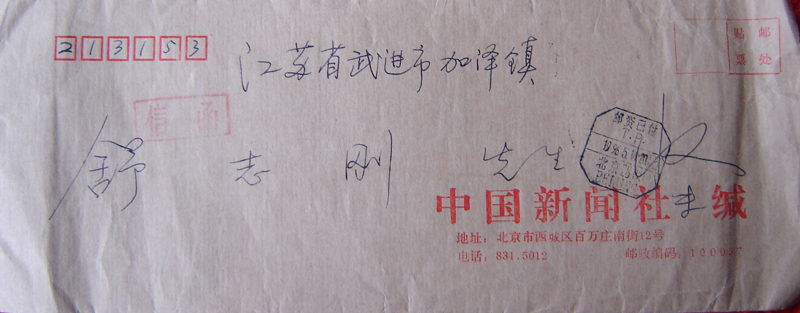 213153
贴 邮
票 处
江苏省武进市加泽镇
信函
舒 志 刚 先生
邮资已付
T.P.
北京
中国新闻社 缄
地址：北京市西城区百万庄南街12号
电话：831.5012 邮政编码：100037